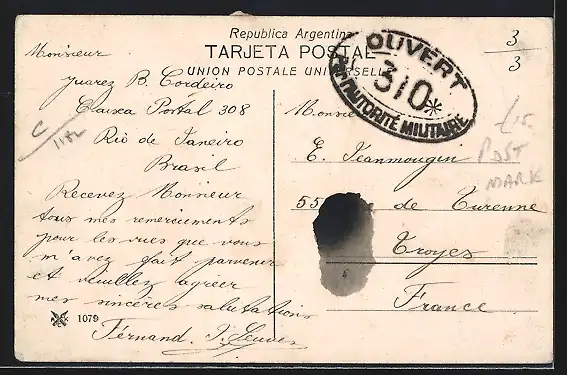 Republica Argentina
TARJETA POSTAL
UNION POSTALE UNIVERSELLE
OUVERT
310*
PAR L'AUTORITÉ MILITAIRE
3/3
Monsieur
Juarez B. Cordeiro
Caixa Postal 308
Rio de Janeiro
Brasil
Recevez Monsieur
tous mes remerciements
pour les vues que vous
m'avez fait parvenir
et veuillez agréer
mes sincères salutations
Fernand.
1079
Monsieur
E. Jeanmougin
55 de Turenne
Troyes
France
£15
POST
MARK